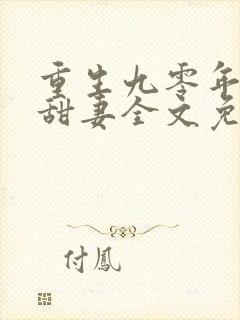 重生九零年
甜妻全文免
付鳳